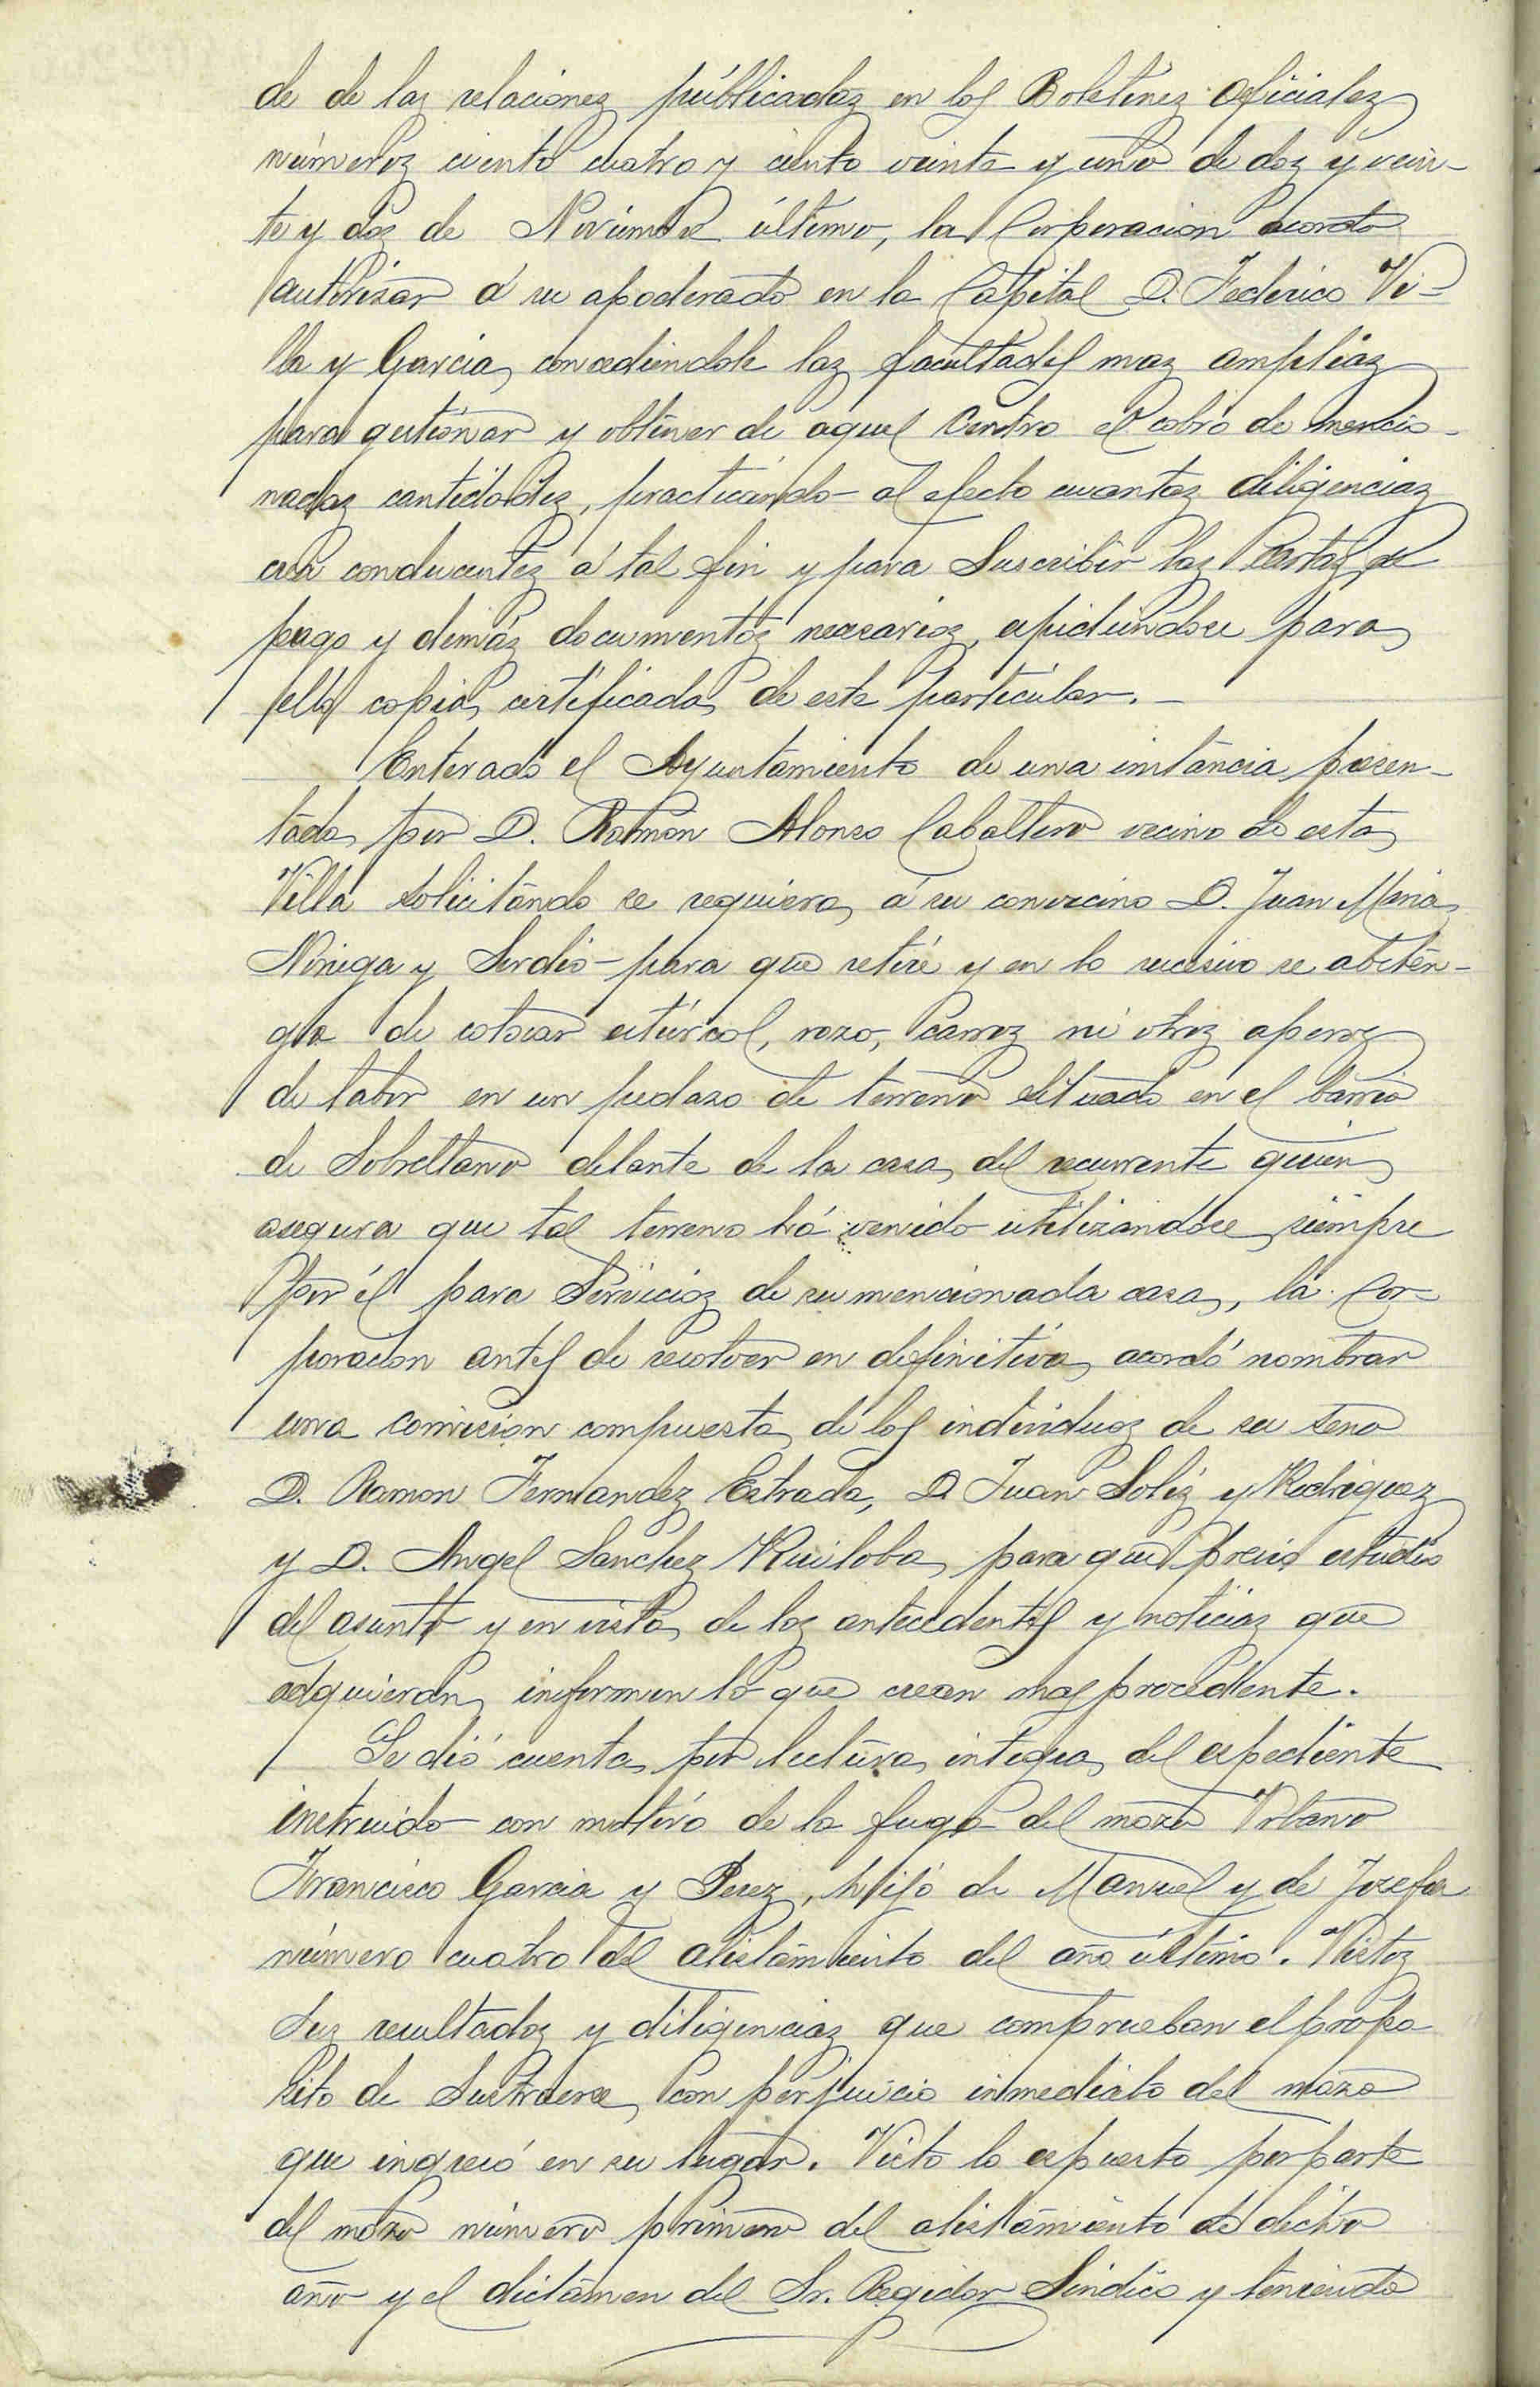 de de las relaciones publicadas en los Boletines oficiales
números ciento cuatro y ciento veinte y uno de dos y vein-
te y dos de Noviembre último, la Corporacion acordó
autorizar á su apoderado en la Capital D. Federico Vi-
lla y Garcia, concediendole las facultades mas amplias
para gestionar y obtener de aquel Centro el cobro de mencio-
nadas cantidades, practicando al efecto cuantas diligencias
crea conducentes á tal fin y para suscribir las cartas de
pago y demás documentos necesarios, expidiendose para
ello copia certificada de este particular.-
Enterado el Ayuntamiento de una instancia presen-
tada por D. Ramon Alonso Caballero vecino de esta
Villa solicitando se requiera á su convecino D. Juan Maria
Noriega y Sordo para que retire y en lo sucesivo se absten-
ga de colocar estiercol, rozo, carros ni otros aperos
de labor en un pedazo de terreno situado en el barrio
de Sobrellano delante de la casa del recurrente quien
asegura que tal terreno há venido utilizandose siempre
por él para Servicios de su mencionada casa, la Cor-
poracion antes de resolver en definitiva acordó nombrar
una comision compuesta de los individuos de su seno
D. Ramon Fernandez Estrada, D. Juan Solis y Rodriguez
y D. Angel Sanchez Ruiloba, para que previo estudio
del asunto y en vista de los antecedentes y noticias que
adquieran, informen lo que crean mas procedente.
Se dió cuenta por lectura integra del expediente
instruido con motivo de la fuga del mozo Urbano
Francisco Garcia y Perez, hijo de Manuel y de Josefa
número cuatro del alistamiento del año último. Vistos
sus resultados y diligencias que comprueban el propo-
sito de sustraerse, con perjuicio inmediato del mozo
que ingresó en su lugar. Visto lo expuesto por parte
del mozo número primero del alistamiento de dicho
año y el dictámen del Sr. Regidor Sindico y teniendo